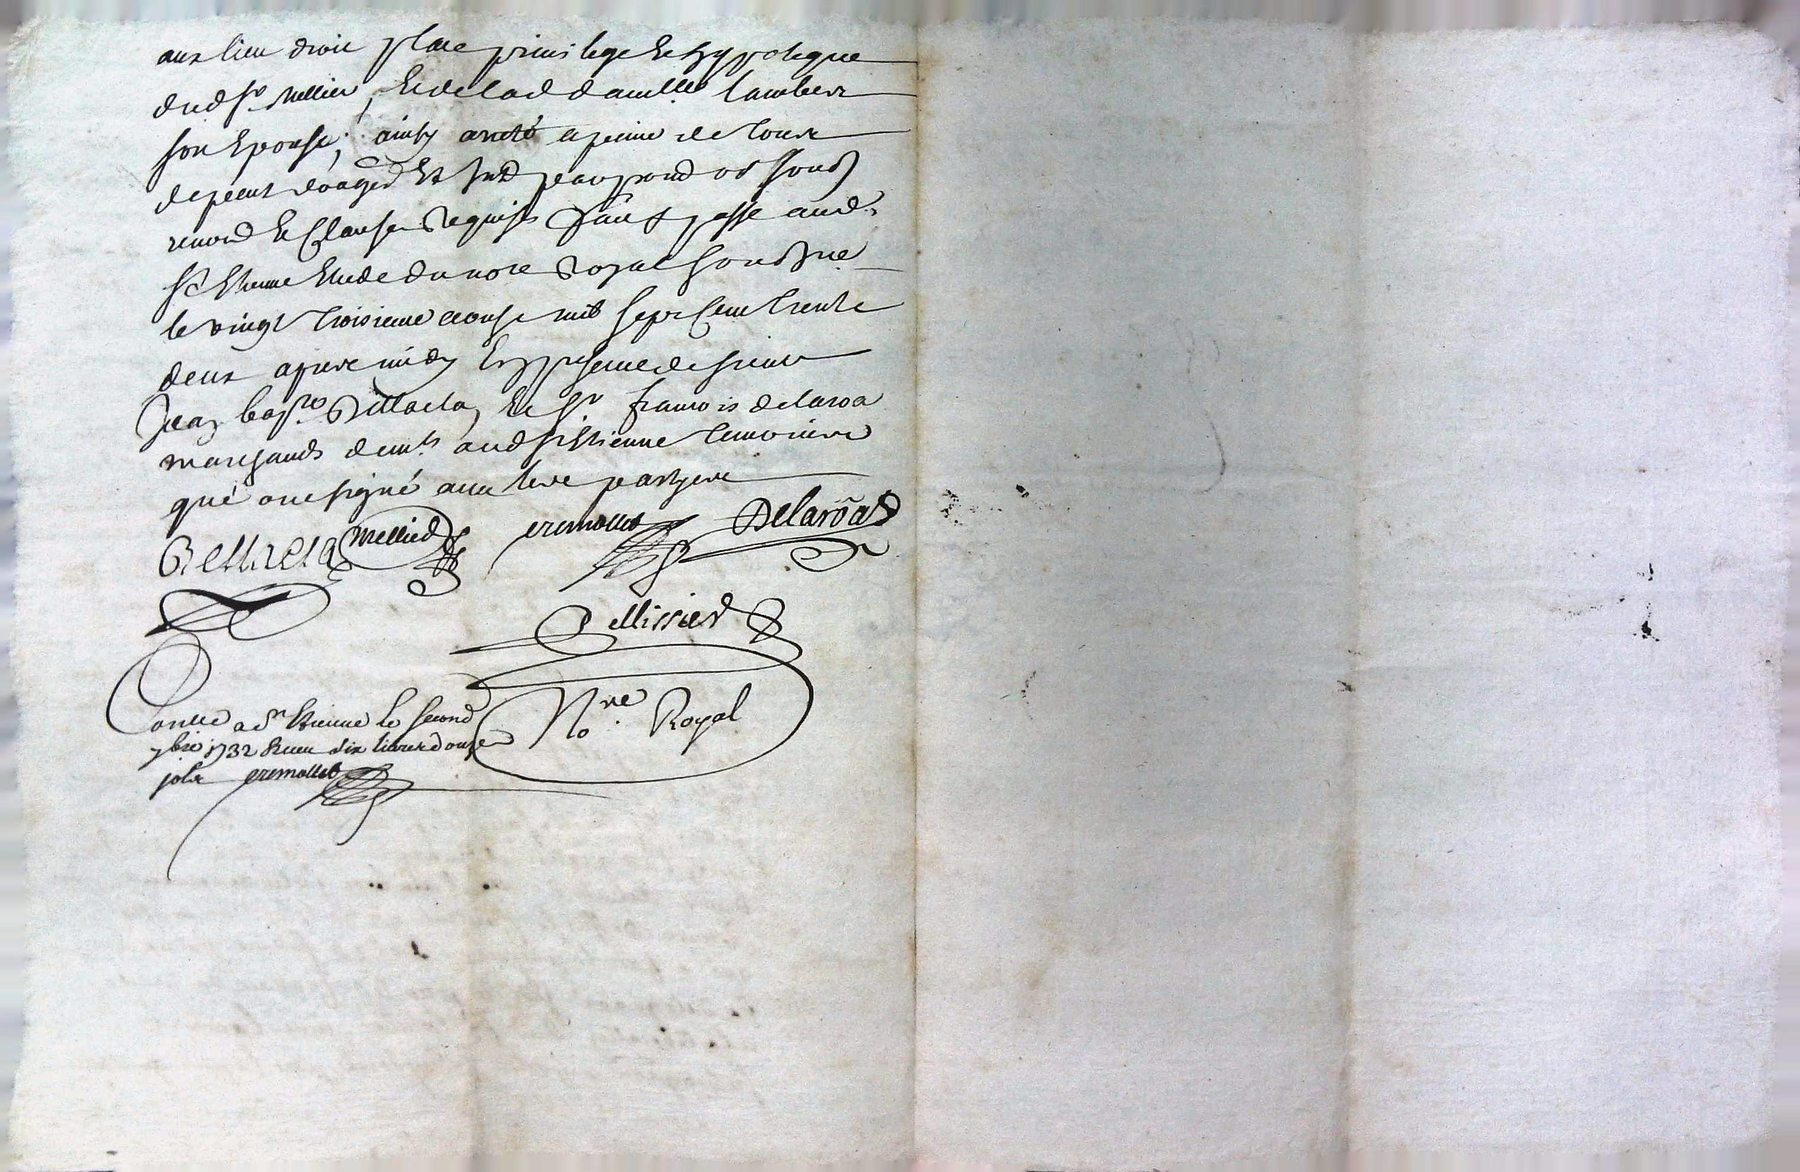 aux lieu droit place privilege et hypoteque
dud sr. Mellier, et de lad damlle lambert
son Epouse; ainsy arreté a peine de tous
depens domages et
renond et Clauses Requises fait & passe aud.
st Etienne Etude du nore Royal soubsne
le vingt troisieme aoust mil sept cent trente
deux apres midy En presence de sieur
Jean bapte et sr françois delaroa
marchands demts aud st Etienne temoins
qui ont signé avec les partyes
Mellier Delaroa
Pellissier
Nore Royal
Conlle a st Etienne le second
7bre 1732 Receu dix livres douze
sols